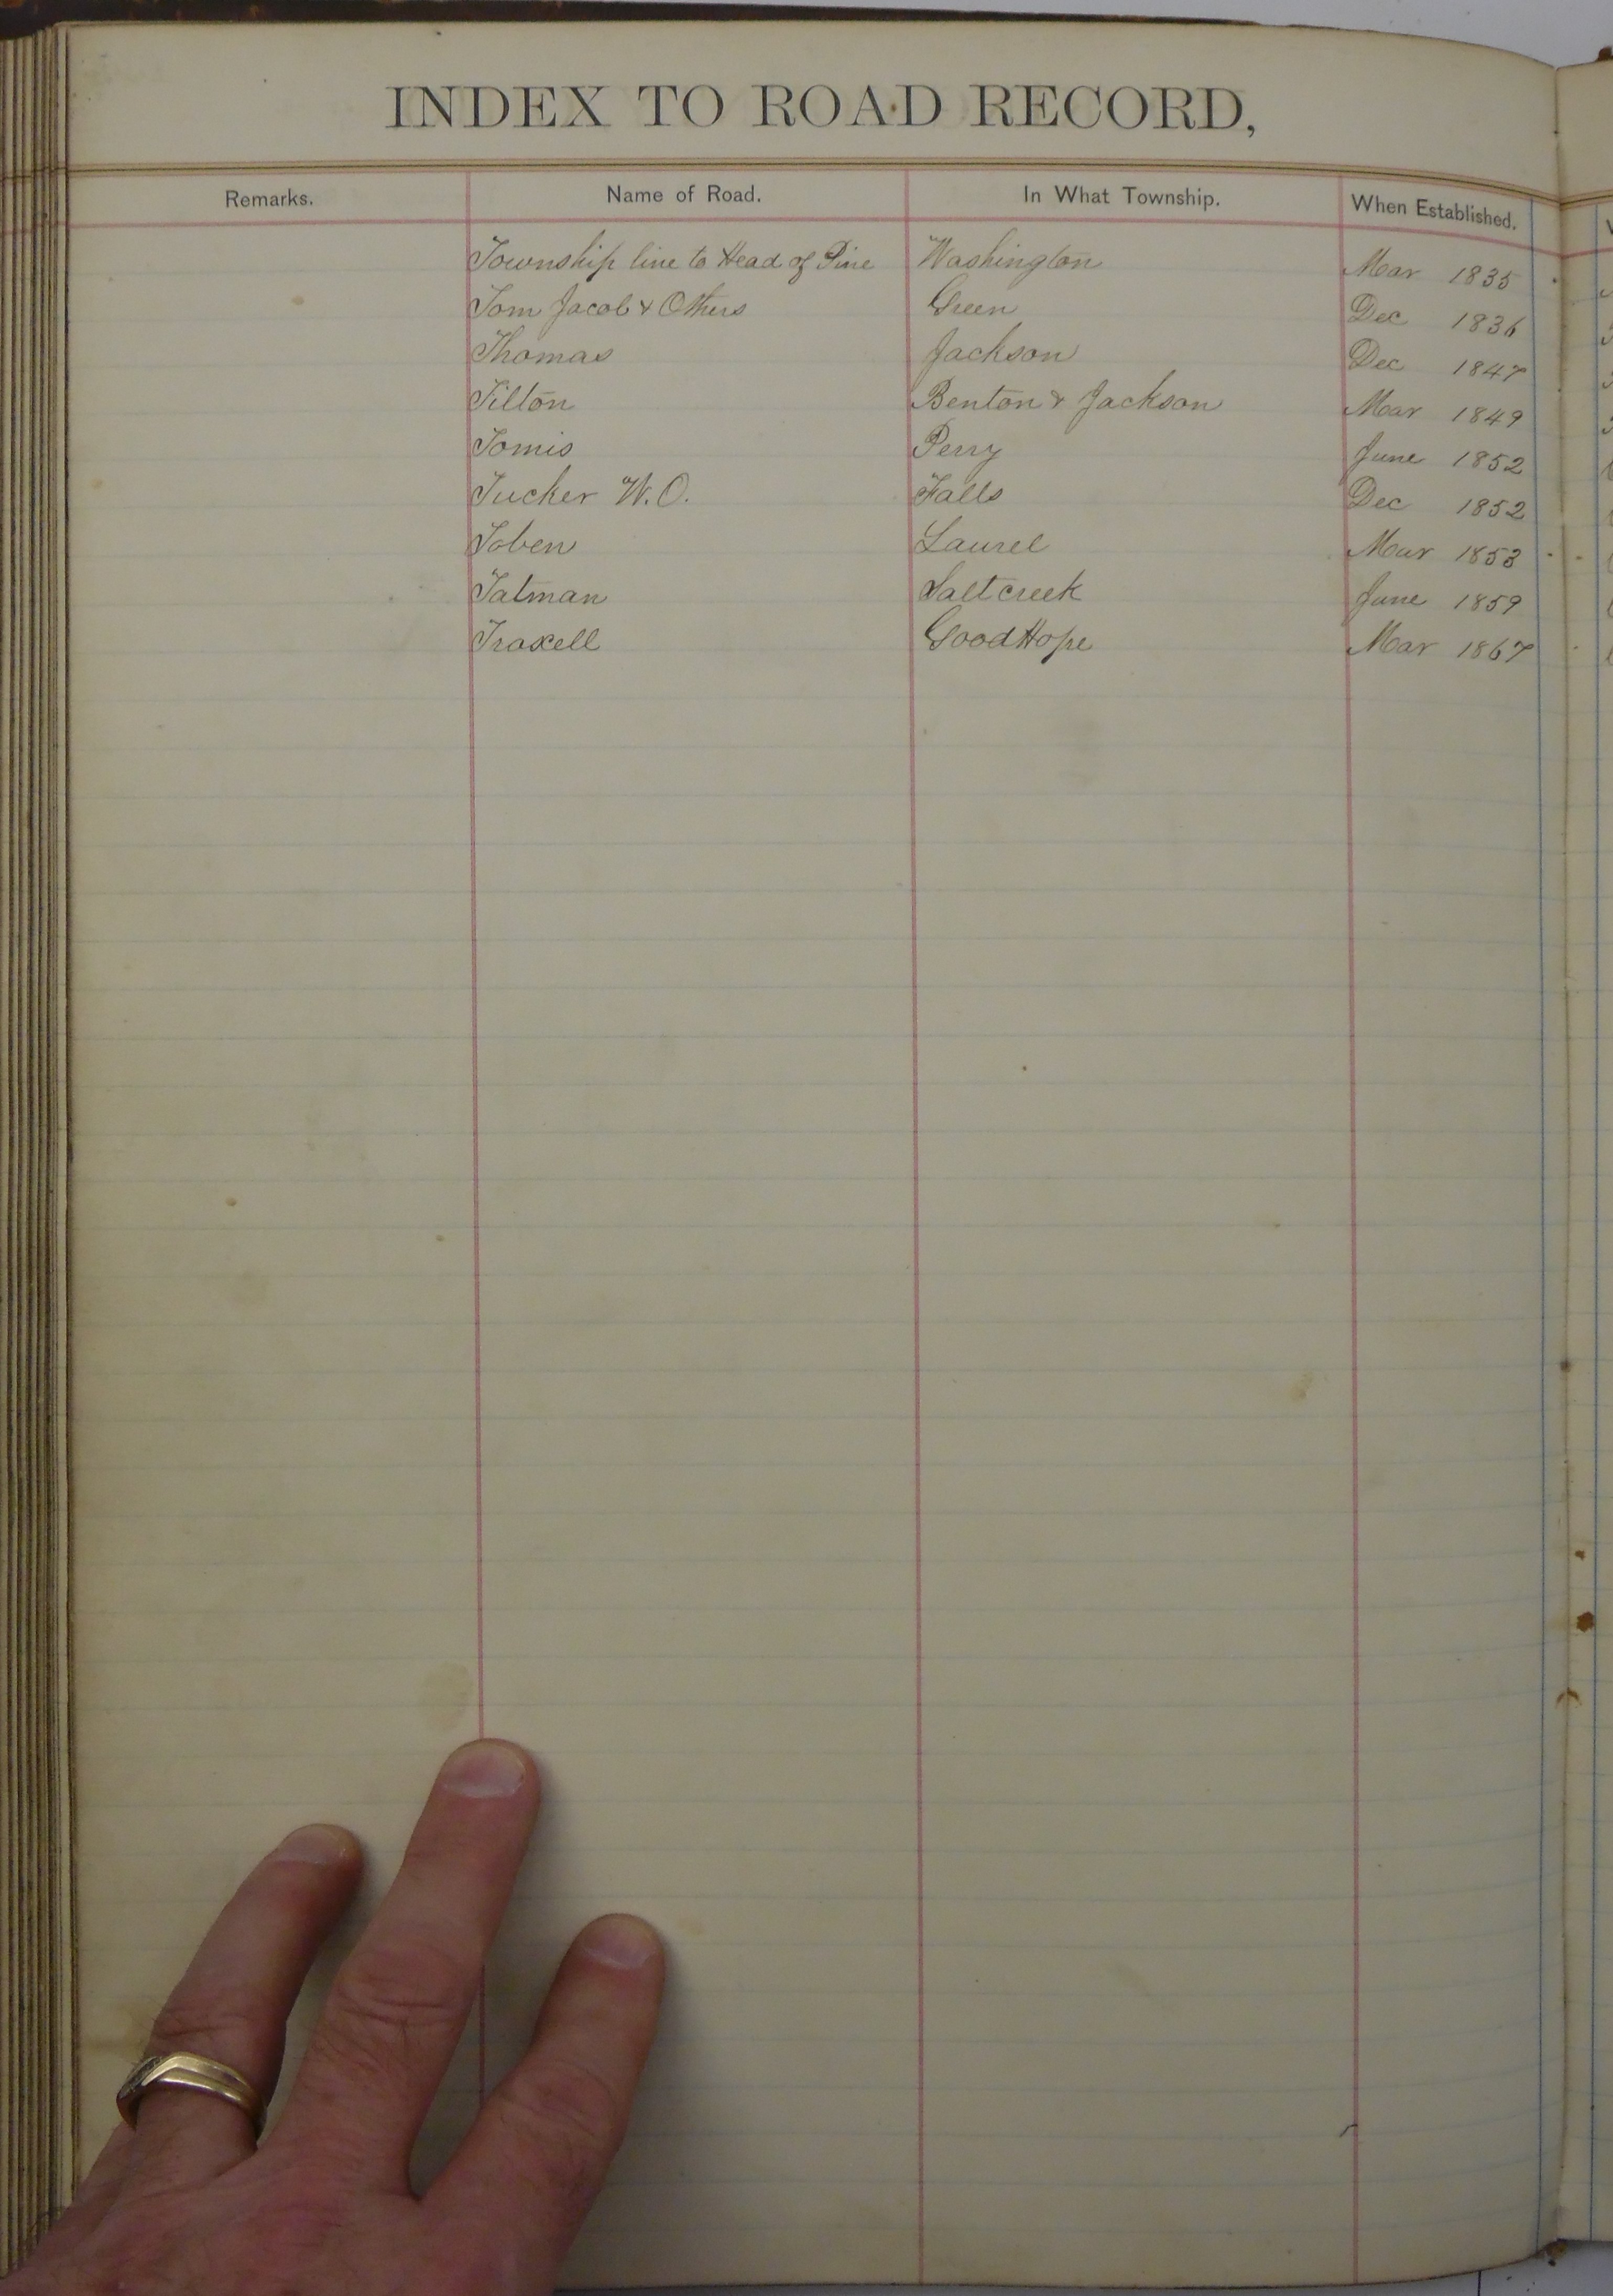 INDEX TO ROAD RECORD,
Remarks. Name of Road. In What Township. When Established.
Township line to Head of Pine Washington Mar 1835
Tom Jacob & Others Green Dec 1836
Thomas Jackson Dec 1847
Tilton Benton & Jackson Mar 1849
Tomis Perry June 1852
Tucker W.O. Falls Dec 1852
Toben Laurel Mar 1853
Tatman Saltcreek June 1859
Troxell Good Hope Mar 1867